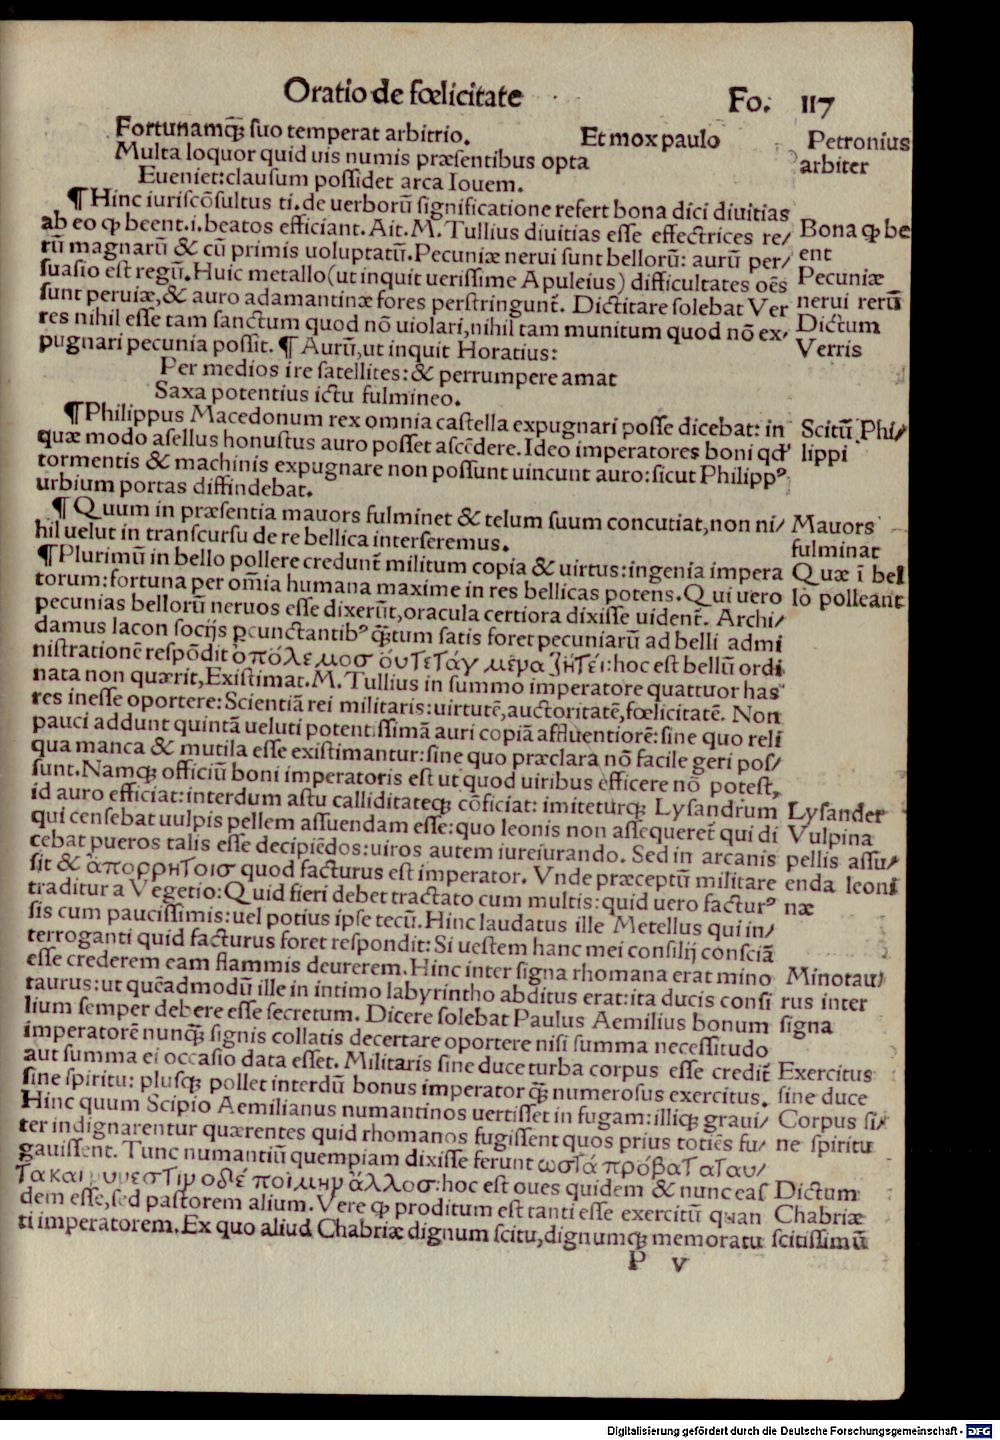 Oratio de fœlicitate Fo. 117
Fortunamqꝫ suo temperat arbitrio. Et mox paulo
Multa loquor quid uis numis præsentibus opta
Eueniet: clausum possidet arca Iouem.
Petronius
arbiter
¶ Hinc iuriscõsultus ti. de uerborũ significatione refert bona dici diuitias
ab eo ꝙ beent .i. beatos efficiant. Ait. M. Tullius diuitias esse effectrices re/
rũ magnarũ & cũ primis uoluptatũ. Pecuniæ nerui sunt bellorũ: aurũ per/
suasio est regũ. Huic metallo (ut inquit uerissime Apuleius) difficultates oẽs
sunt peruiæ, & auro adamantinæ fores perstringunt̃. Dictitare solebat Ver
res nihil esse tam sanctum quod nõ uiolari, nihil tam munitum quod nõ ex/
pugnari pecunia possit. ¶ Aurũ, ut inquit Horatius:
Bona ꝙ be
ent
Pecuniæ
nerui rerũ
Dictum
Verris
Per medios ire satellites: & perrumpere amat
Saxa potentius ictu fulmineo.
¶ Philippus Macedonum rex omnia castella expugnari posse dicebat: in
quæ modo asellus honustus auro posset ascẽdere. Ideo imperatores boni qd'
tormentis & machinis expugnare non possunt uincunt auro: sicut Philippꝰ
urbium portas diffindebat.
Scitũ Phi/
lippi
¶ Quum in præsentia mauors fulminet & telum suum concutiat, non ni/
hil uelut in transcursu de re bellica interseremus.
Mauors
fulminat
¶ Plurimũ in bello pollere credunt̃ militum copia & uirtus: ingenia impera
torum: fortuna per om̃ia humana maxime in res bellicas potens. Qui uero
pecunias bellorũ neruos esse dixerũt, oracula certiora dixisse uident̃. Archi/
damus lacon socijs ꝑcunctantibꝰ qꝫ̃tum satis foret pecuniarũ ad belli admi
nistrationẽ respõdit ὁ πόλεμοσ ὀυ τετάγμέρα ζητεί: hoc est bellũ ordi
nata non quærit, Existimat. M. Tullius in summo imperatore quattuor has
res inesse oportere: Scientiã rei militaris: uirtutẽ, auctoritatẽ, fœlicitatẽ. Non
pauci addunt quintã ueluti potentissimã auri copiã affluentiorẽ: sine quo reli
qua manca & mutila esse existimantur: sine quo præclara nõ facile geri pos/
sunt. Namqꝫ officiũ boni imperatoris est ut quod uiribus efficere nõ potest,
id auro efficiat: interdum astu calliditateqꝫ cõficiat: imiteturqꝫ Lysandrum
qui censebat uulpis pellem assuendam esse: quo leonis non assequeret̃ qui di
cebat pueros talis esse decipiẽdos: uiros autem iureiurando. Sed in arcanis
sit & ἀπορρητοισ quod facturus est imperator. Vnde præceptũ militare
traditur a Vegetio: Quid fieri debet tractato cum multis: quid uero facturꝰ
sis cum paucissimis: uel potius ipse tecũ. Hinc laudatus ille Metellus qui in/
terroganti quid facturus foret respondit: Si uestem hanc mei consilij consciã
esse crederem eam flammis deurerem. Hinc inter signa rhomana erat mino
taurus: ut quẽadmodũ ille in intimo labyrintho abditus erat: ita ducis consi
lium semper debere esse secretum. Dicere solebat Paulus Aemilius bonum
imperatorẽ nunqꝫ̃ signis collatis decertare oportere nisi summa necessitudo
aut summa ei occasio data esset. Militaris sine duce turba corpus esse credit̃
sine spiritu: plusqꝫ pollet interdũ bonus imperator qꝫ̃ numerosus exercitus.
Hinc quum Scipio Aemilianus numantinos uertisset in fugam: illiqꝫ graui/
ter indignarentur quærentes quid rhomanos fugissent quos prius totiẽs fu/
gauissent. Tunc numantiũ quempiam dixisse ferunt ωστά πρόβατα ταυ/
τα και νυνεστιν ο δέ ποίμην ἄλλοσ: hoc est oues quidem & nunc eas
dem esse, sed pastorem alium. Vere ꝙ proditum est tanti esse exercitũ quan
ti imperatorem. Ex quo aliud Chabriæ dignum scitu, dignumqꝫ memoratu
Quæ ĩ bel
lo polleant
Lysander
Vulpina
pellis assu/
enda leoni
næ
Minotau/
rus inter
signa
Exercitus
sine duce
Corpus si/
ne spiritu
Dictum
Chabriæ
scitissimũ
P v
Digitalisierung gefördert durch die Deutsche Forschungsgemeinschaft - DFG